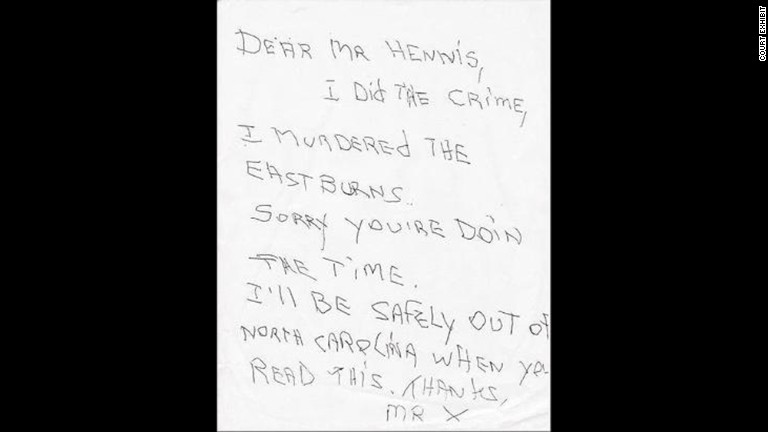 DEAR MR HENNIS,
I Did THE CRIME,
I MURDERED THE
EASTBURNS.
SORRY YOU'RE DOIN
THE TIME.
I'll BE SAFELY OUT of
NORTH CAROLINA WHEN you
READ THIS. THANKS,
MR X
COURT EXHIBIT